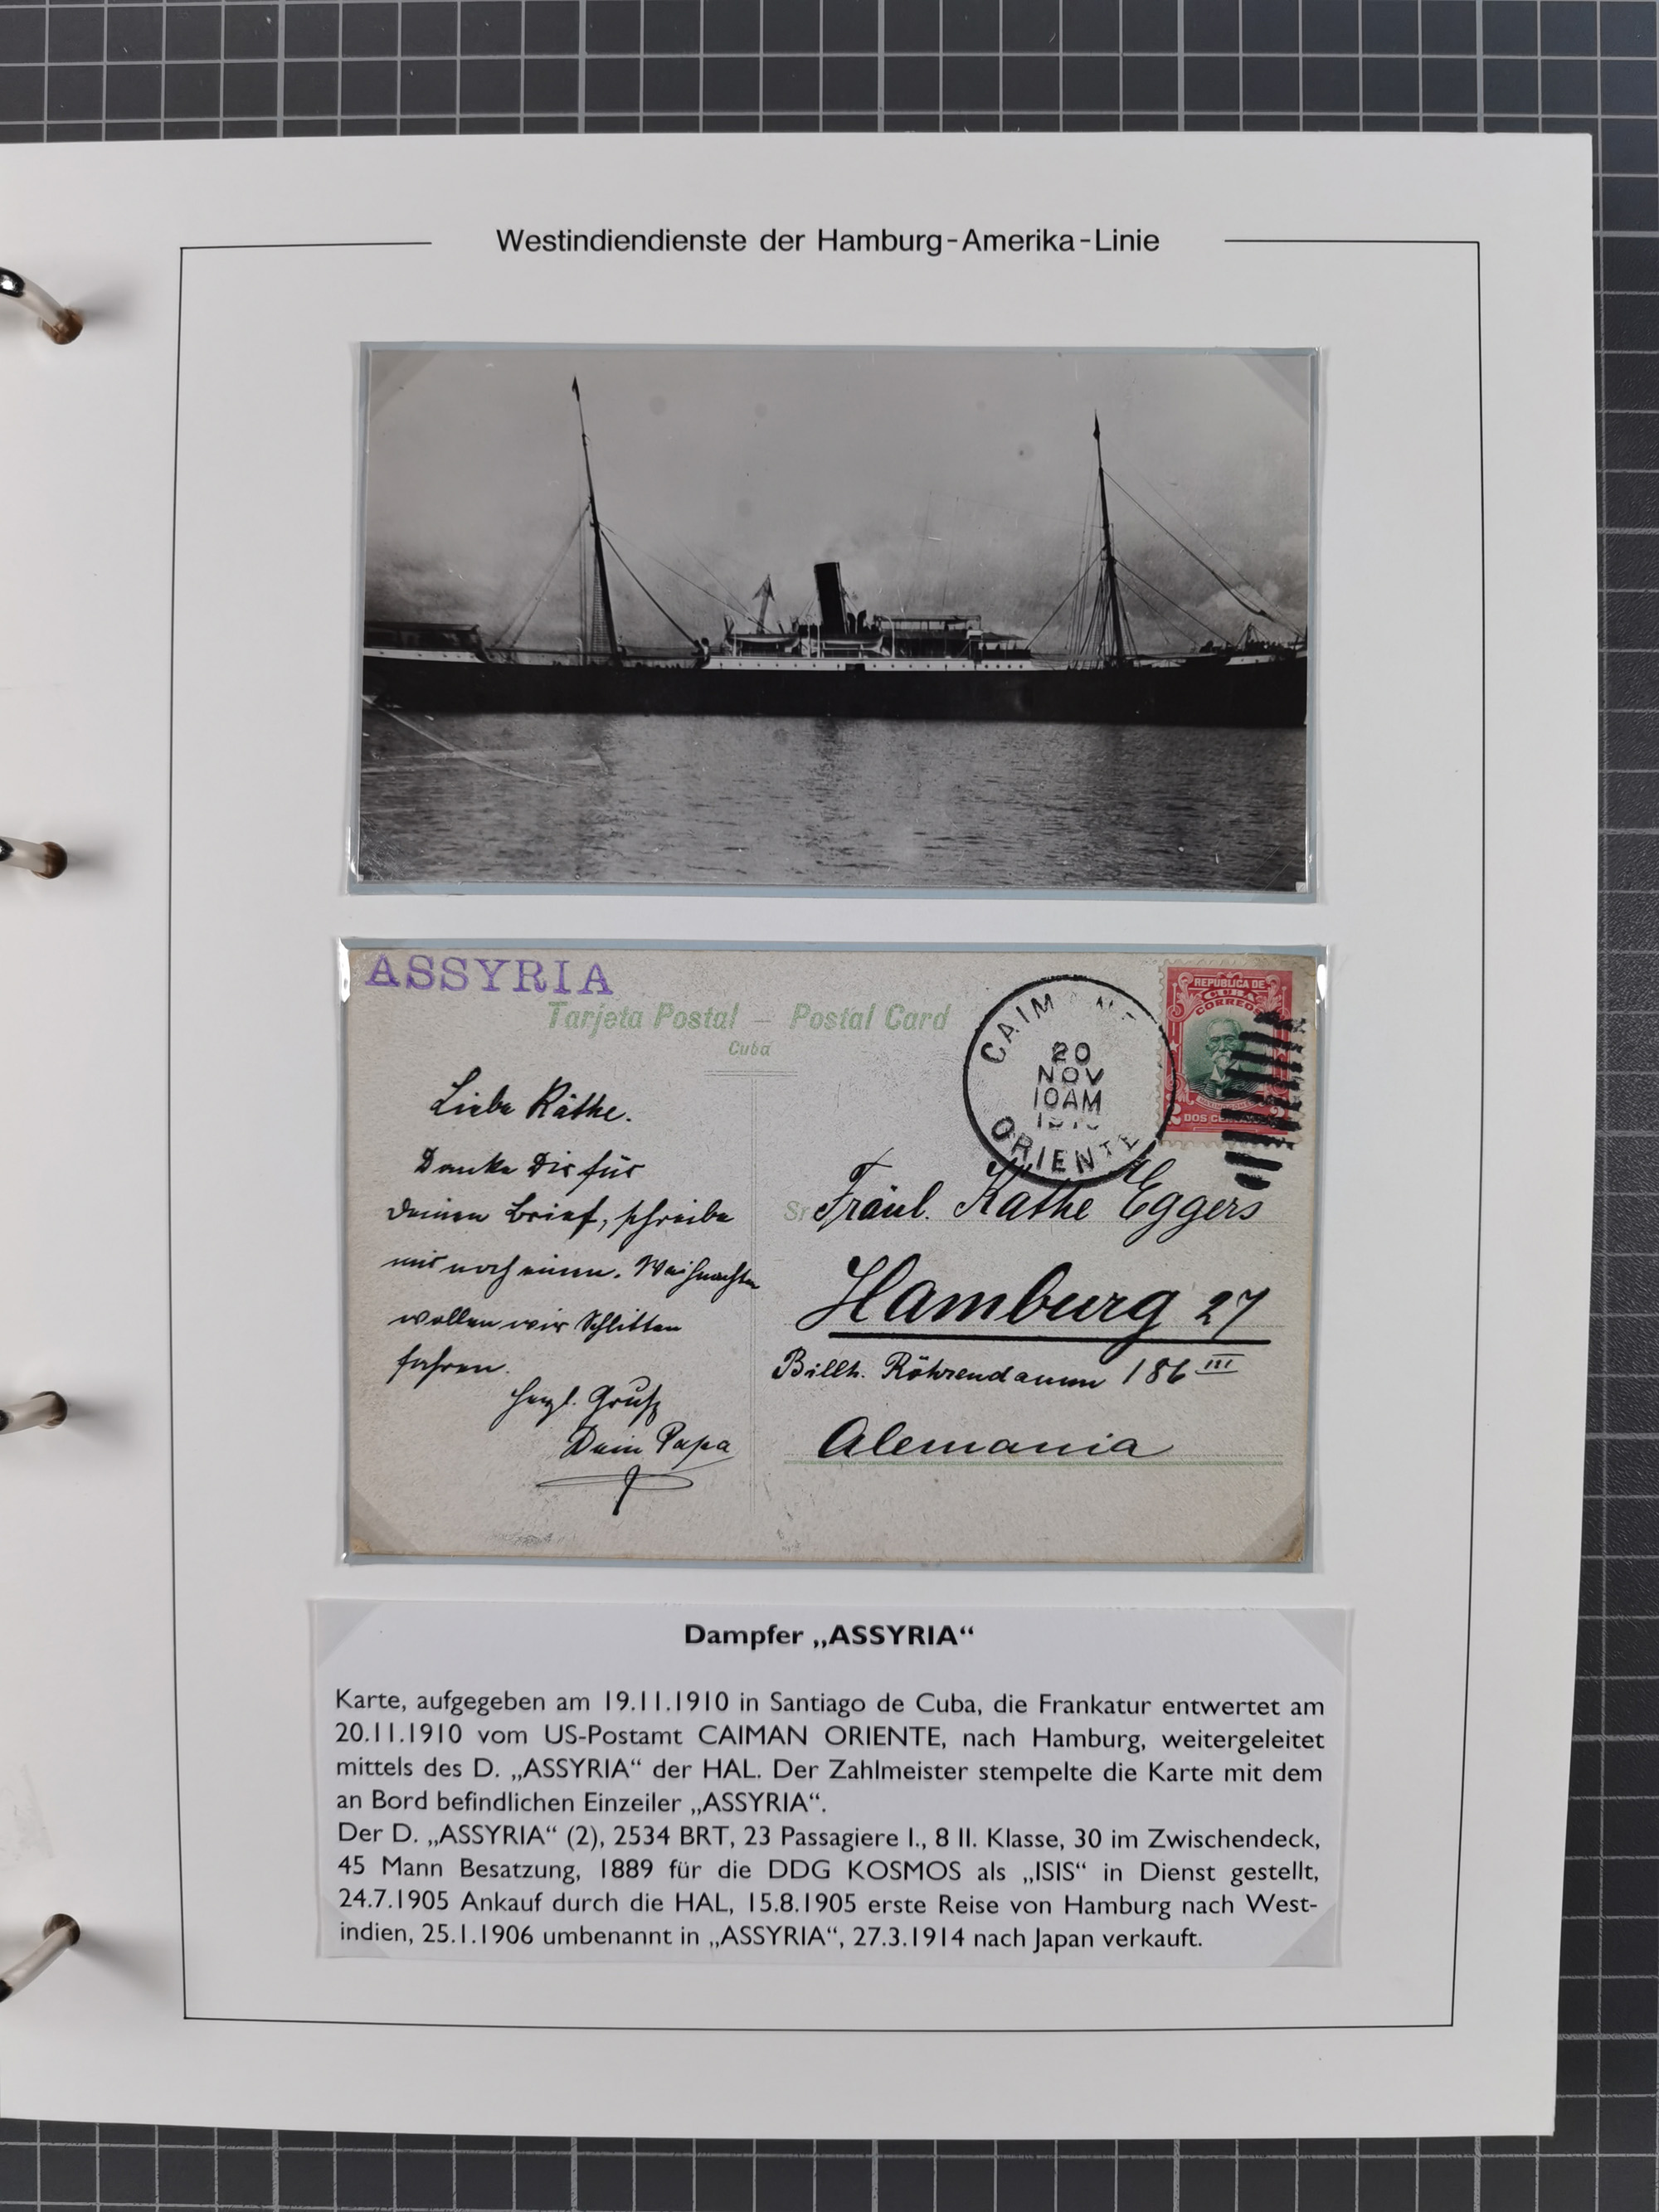 Westindiendienste der Hamburg-Amerika-Linie
ASSYRIA
Tarjeta Postal – Postal Card
Cuba
CAIMAN
20
NOV
10AM
ORIENTE
REPUBLICA DE
CUBA
CORREOS
2 2
DOS
Liebe Käthe.
Danke Dir für
Deinen Brief, schreibe
mir noch einen. Weihnachten
wollen wir Schlitten
fahren.
Herzl. Gruß
Dein Papa
Sr Fräul. Käthe Eggers
Hamburg 27
Billh. Röhrendamm 186 III
Alemania
Dampfer „ASSYRIA“
Karte, aufgegeben am 19.11.1910 in Santiago de Cuba, die Frankatur entwertet am
20.11.1910 vom US-Postamt CAIMAN ORIENTE, nach Hamburg, weitergeleitet
mittels des D. „ASSYRIA“ der HAL. Der Zahlmeister stempelte die Karte mit dem
an Bord befindlichen Einzeiler „ASSYRIA“.
Der D. „ASSYRIA“ (2), 2534 BRT, 23 Passagiere I., 8 II. Klasse, 30 im Zwischendeck,
45 Mann Besatzung, 1889 für die DDG KOSMOS als „ISIS“ in Dienst gestellt,
24.7.1905 Ankauf durch die HAL, 15.8.1905 erste Reise von Hamburg nach West-
indien, 25.1.1906 umbenannt in „ASSYRIA“, 27.3.1914 nach Japan verkauft.